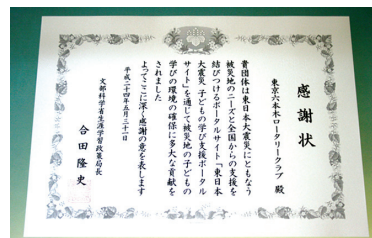 感謝状
東京六本木ロータリークラブ 殿
貴団体は東日本大震災にともなう
被災地のニーズと全国からの支援を
結びつけるポータルサイト「東日本
大震災 子どもの学び支援ポータル
サイト」を通じて被災地の子どもの
学びの環境の確保に多大な貢献を
されました
よってここに深く感謝の意を表します
平成二十四年五月三十一日
文部科学省生涯学習政策局長
合田隆史